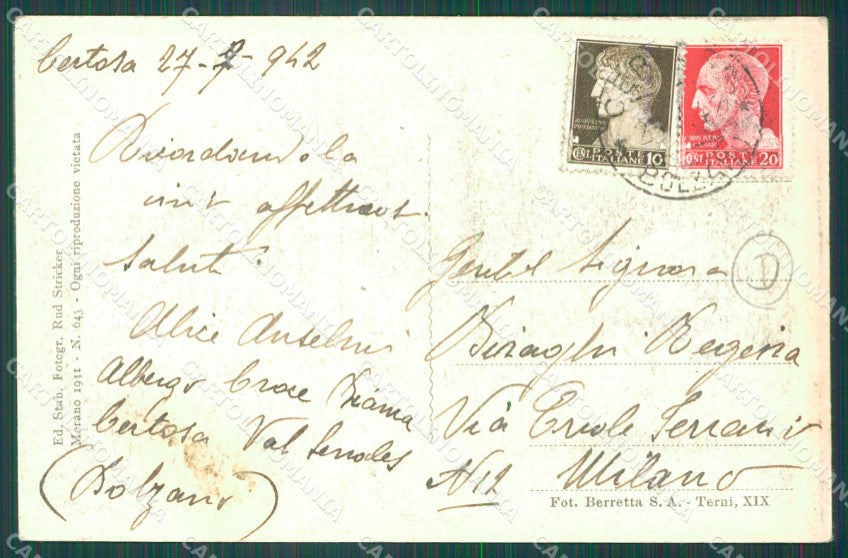 Certosa 27-7-942
Ricordandola
invio affettuosi
saluti.
Alice Anselmi
Albergo Croce Bianca
Certosa Val Senales
(Bolzano)
Gentil Signora
Biraghi Regina
Via Ercole Ferrario
N 12 Milano
D
Ed. Stab. Fotogr. Rud Stricker
Merano 1941 - N. 643 - Ogni riproduzione vietata
Fot. Berretta S. A. - Terni, XIX
CENT POSTE ITALIANE 10
CENT POSTE ITALIANE 20
CARTOLINOMANIA